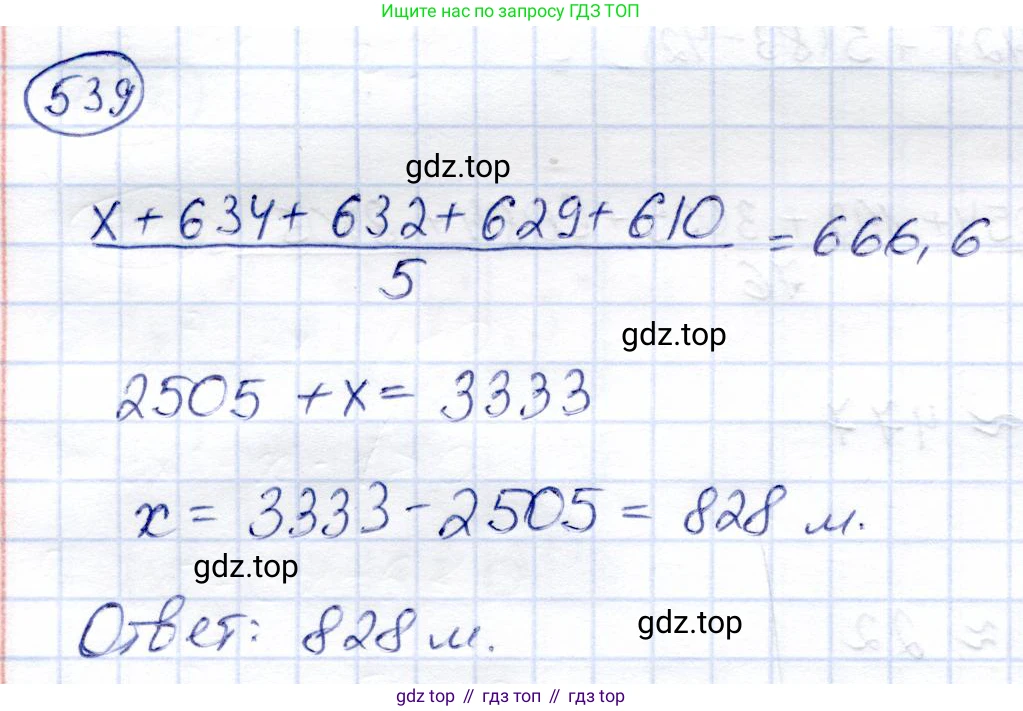 Ищите нас по запросу ГДЗ ТОП
539
gdz.top
x + 634 + 632 + 629 + 610
5
= 666,6
gdz.top
2505 + x = 3333
x = 3333 - 2505 = 828 м.
gdz.top
Ответ: 828 м.
gdz.top
gdz top // гдз топ // гдз top